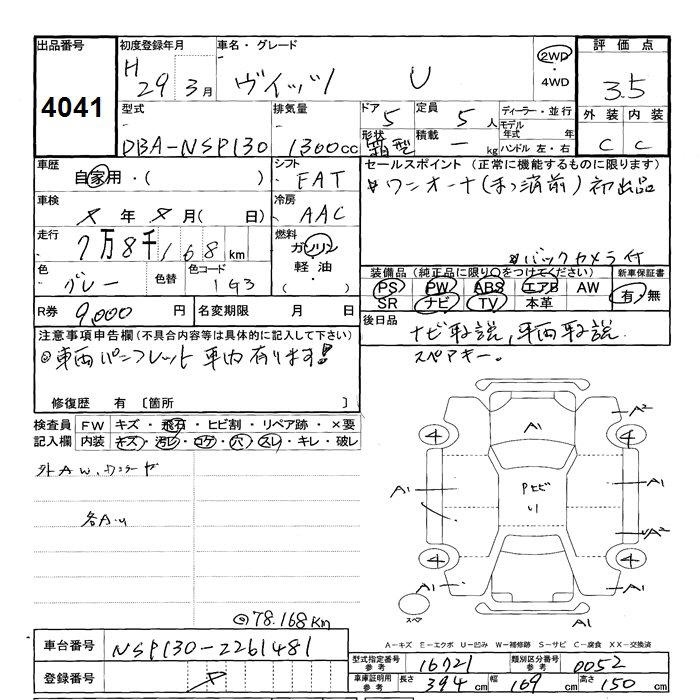 出品番号 初度登録年月 車名・グレード 評価点
4041 H 29 3月 ヴィッツ U 2WD・4WD 3.5
型式 排気量 ドア 5 定員 5人 ディーラー・並行 外装 内装
DBA-NSP130 1300cc 形状 箱型 積載 - kg モデル年式 年 ハンドル 左・右 C C
車歴 自家用・( ) シフト FAT セールスポイント (正常に機能するものに限ります)
車検 年 月( 日) 冷房 AAC ワンオーナー(まっ消前)初出品
走行 7万8千168km 燃料 ガソリン・軽油・( ) バックカメラ付
色 グレー 色替 色コード 1G3 装備品(純正品に限り○をつけてください) 新車保証書
PS PW ABS エアB AW 有・無
SR ナビ TV 本革
R券 9,000円 名変期限 月 日 後日品 ナビ取説,車両取説
スペアキー。
注意事項申告欄(不具合内容等は具体的に記入して下さい)
◎車両パンフレット 車内有ります!
修復歴 有〔箇所 〕
検査員記入欄 FW キズ・飛石・ヒビ割・リペア跡・×要
内装 キズ・汚レ・コゲ・穴・スレ・キレ・破レ
外AW、
各A.U
◎78.168km
A1 A2 4 4 A1 Pヒビ A1 A2 4 4 A1 A1 A1
スペア
A-キズ E-エクボ U-凹み W-補修跡 S-サビ C-腐食 XX-交換済
車台番号 NSP130-2261481
登録番号
型式指定番号参考 16721 類別区分番号参考 0052
車庫証明用参考 長さ 394cm 幅 169cm 高さ 150cm